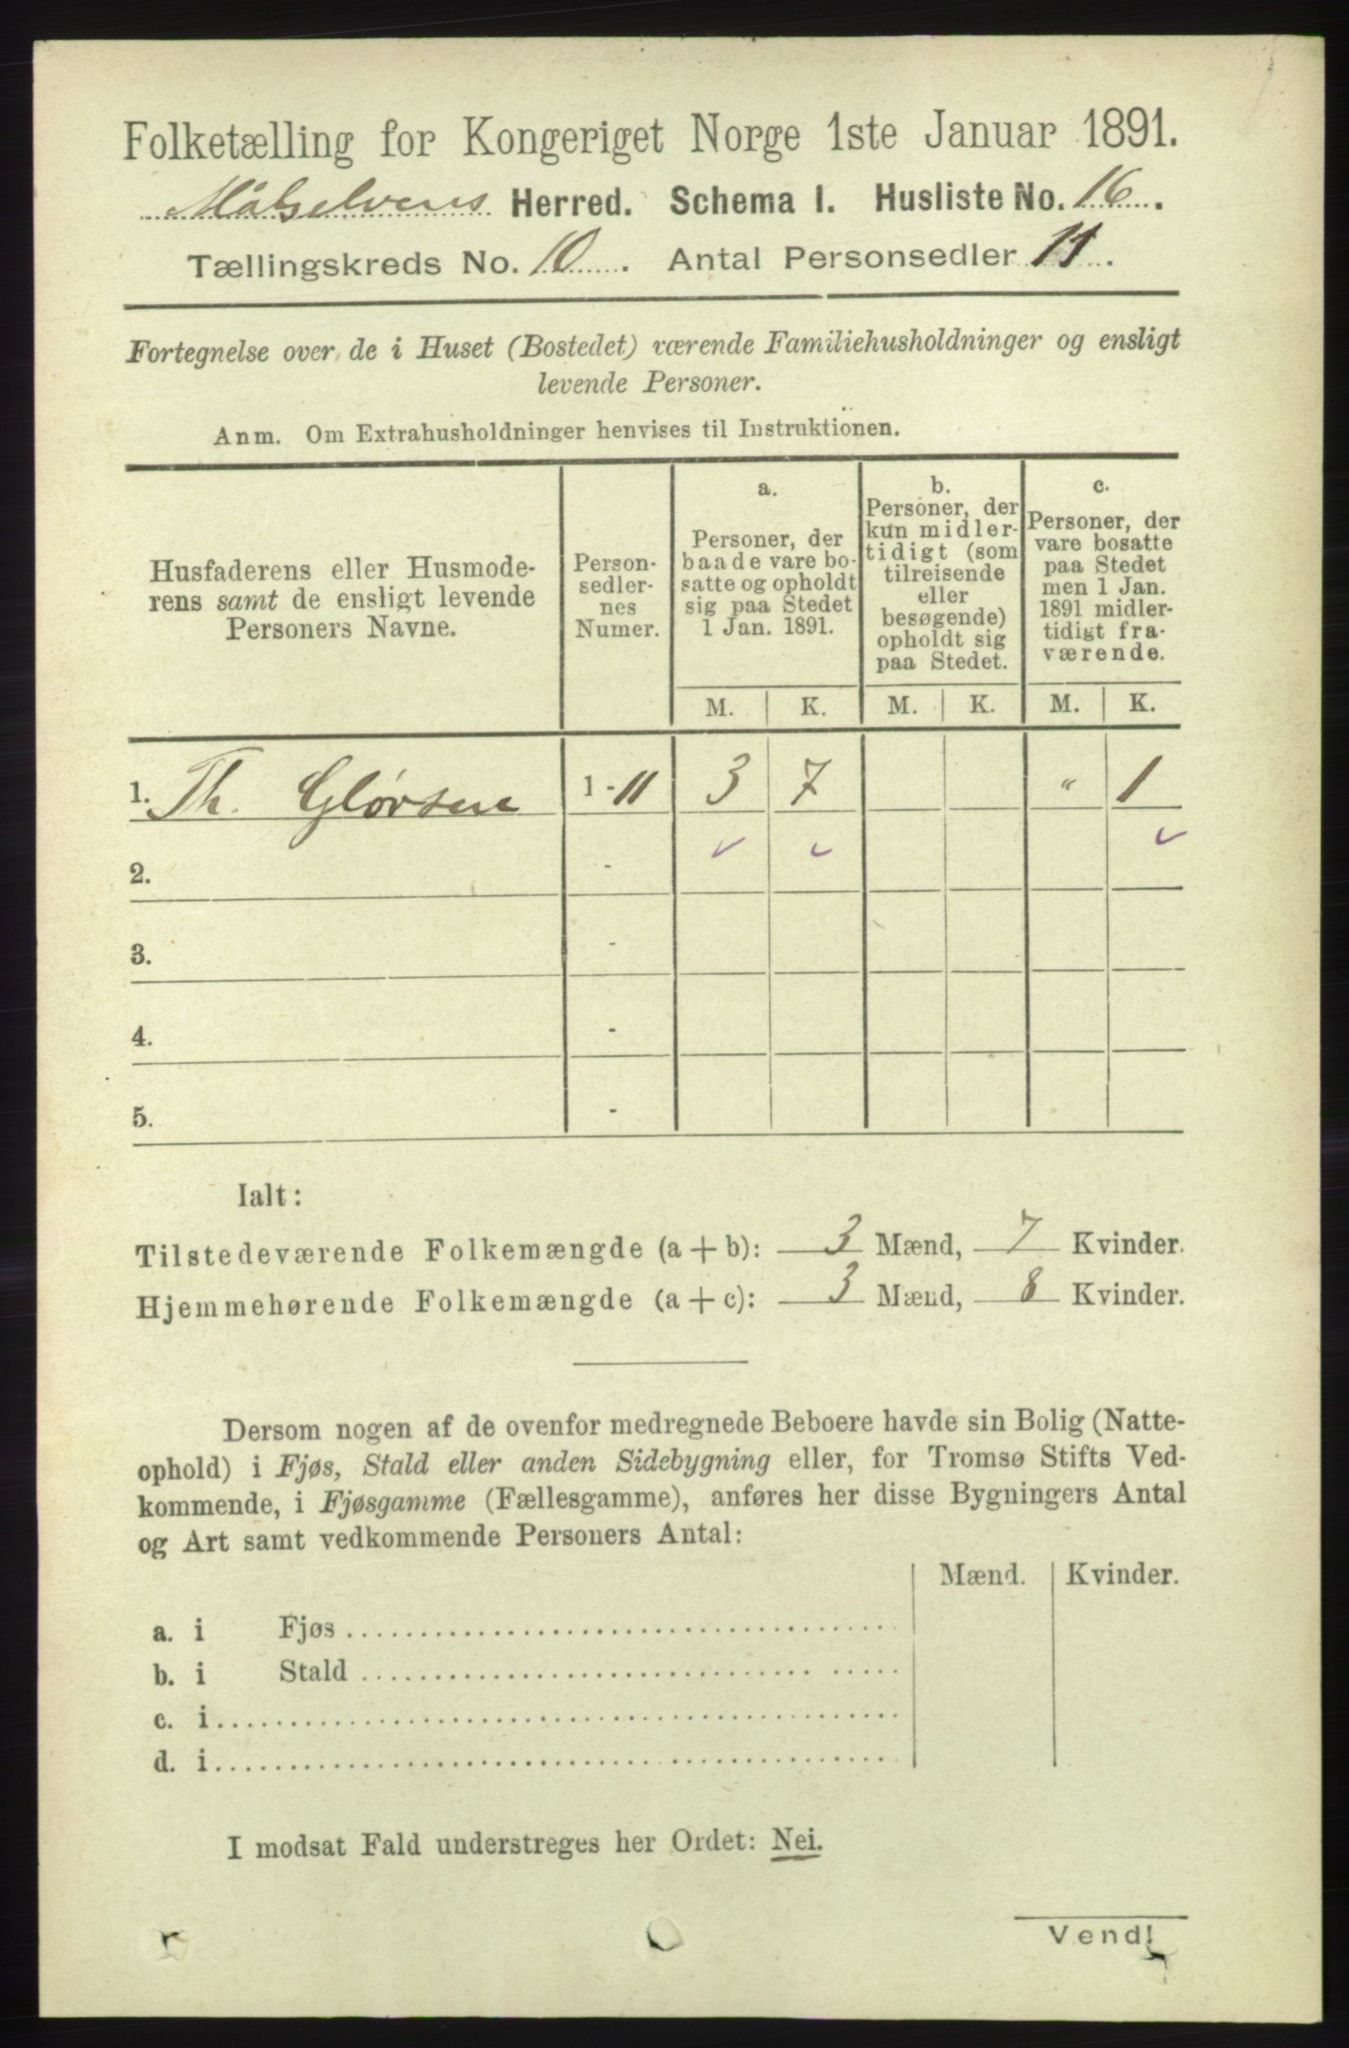 Folketælling for Kongeriget Norge 1ste Januar 1891.
Målselvens Herred. Schema I. Husliste No. 16.
Tællingskreds No. 10. Antal Personsedler 11.
Fortegnelse over de i Huset (Bostedet) værende Familiehusholdninger og ensligt
levende Personer.
Anm. Om Extrahusholdninger henvises til Instruktionen.
Husfaderens eller Husmode-
rens samt de ensligt levende
Personers Navne.
Person-
sedler-
nes
Numer.
a.
Personer, der
baade vare bo-
satte og opholdt
sig paa Stedet
1 Jan. 1891.
b.
Personer, der
kun midler-
tidigt (som
tilreisende
eller
besøgende)
opholdt sig
paa Stedet.
c.
Personer, der
vare bosatte
paa Stedet
men 1 Jan.
1891 midler-
tidigt fra-
værende.
M. K. M. K. M. K.
1. Th. Glørsen 1 - 11 3 7 " 1
2. -
3. -
4. -
5. -
Ialt:
Tilstedeværende Folkemængde (a + b): 3 Mænd, 7 Kvinder.
Hjemmehørende Folkemængde (a + c): 3 Mænd, 8 Kvinder.
Dersom nogen af de ovenfor medregnede Beboere havde sin Bolig (Natte-
ophold) i Fjøs, Stald eller anden Sidebygning eller, for Tromsø Stifts Ved-
kommende, i Fjøsgamme (Fællesgamme), anføres her disse Bygningers Antal
og Art samt vedkommende Personers Antal:
Mænd. Kvinder.
a. i Fjøs
b. i Stald
c. i
d. i
I modsat Fald understreges her Ordet: Nei.
Vend!